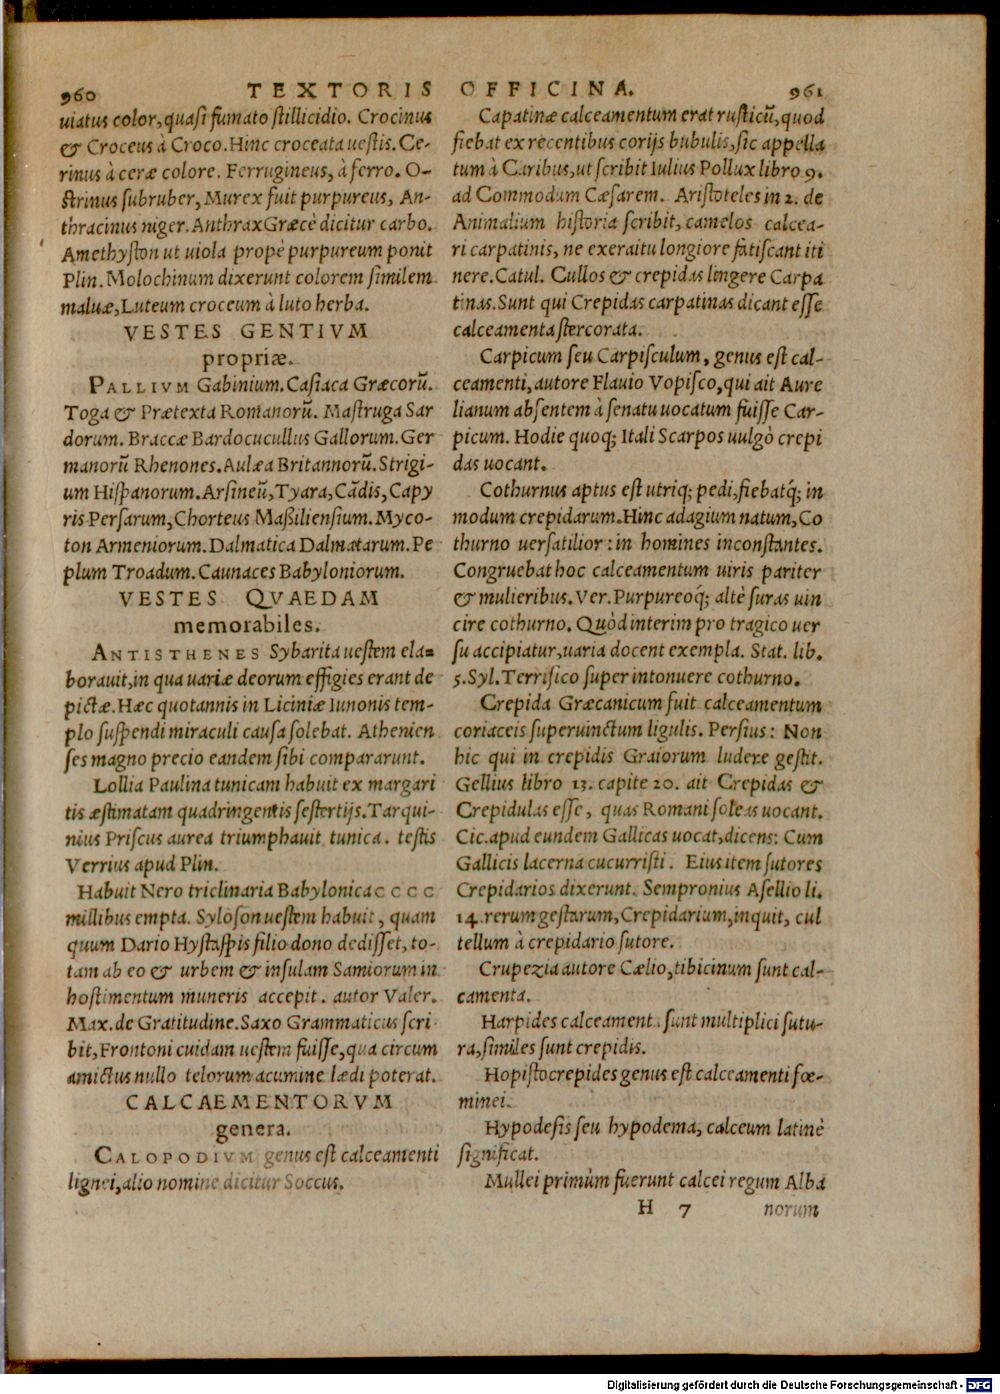 960 TEXTORIS OFFICINA. 961
uiatus color, quasi fumato stillicidio. Crocinus
& Croceus à Croco. Hinc croceata uestis. Ce-
rinus à ceræ colore. Ferrugineus, à ferro. O-
strinus subruber, Murex fuit purpureus, An-
thracinus niger. Anthrax Græcè dicitur carbo.
Amethyston ut uiola propè purpureum ponit
Plin. Molochinum dixerunt colorem similem
maluæ, Luteum croceum à luto herba.
VESTES GENTIVM
propriæ.
PALLIVM Gabinium. Casiaca Græcorũ.
Toga & Prætexta Romanorũ. Mastruga Sar
dorum. Braccæ Bardocucullus Gallorum. Ger
manorũ Rhenones. Aulæa Britannorũ. Strigi-
um Hispanorum. Arsineũ, Tyara, Cãdis, Capy
ris Persarum, Chorteus Maßiliensium. Myco-
ton Armeniorum. Dalmatica Dalmatarum. Pe
plum Troadum. Caunaces Babyloniorum.
VESTES QVAEDAM
memorabiles.
ANTISTHENES Sybarita uestem ela-
borauit, in qua uariæ deorum effigies erant de
pictæ. Hæc quotannis in Liciniæ Iunonis tem-
plo suspendi miraculi causa solebat. Athenien
ses magno precio eandem sibi compararunt.
Lollia Paulina tunicam habuit ex margari
tis æstimatam quadringentis sestertijs. Tarqui-
nius Priscus aurea triumphauit tunica. testis
Verrius apud Plin.
Habuit Nero triclinaria Babylonica CCCC
millibus empta. Syloson uestem habuit, quam
quum Dario Hystaspis filio dono dedisset, to-
tam ab eo & urbem & insulam Samiorum in
hostimentum muneris accepit. autor Valer.
Max. de Gratitudine. Saxo Grammaticus scri
bit, Frontoni cuidam uestem fuisse, qua circum
amictus nullo telorum acumine lædi poterat.
CALCAEMENTORVM
genera.
CALOPODIVM genus est calceamenti
lignei, alio nomine dicitur Soccus.
Capatinæ calceamentum erat rusticũ, quod
fiebat ex recentibus corijs bubulis, sic appella
tum à Caribus, ut scribit Iulius Pollux libro 9.
ad Commodum Cæsarem. Aristoteles in 2. de
Animalium historia scribit, camelos calcea-
ri carpatinis, ne exeraitu longiore fatiscant iti
nere. Catul. Cullos & crepidas lingere Carpa
tinas. Sunt qui Crepidas carpatinas dicant esse
calceamenta stercorata.
Carpicum seu Carpisculum, genus est cal-
ceamenti, autore Flauio Vopisco, qui ait Aure
lianum absentem à senatu uocatum fuisse Car-
picum. Hodie quoq; Itali Scarpos uulgò crepi
das uocant.
Cothurnus aptus est utriq; pedi, fiebatq́; in
modum crepidarum. Hinc adagium natum, Co
thurno uersatilior: in homines inconstantes.
Congruebat hoc calceamentum uiris pariter
& mulieribus. Ver. Purpureoq; altè suras uin
cire cothurno. Quòd interim pro tragico uer
su accipiatur, uaria docent exempla. Stat. lib.
5. Syl. Terrifico super intonuere cothurno.
Crepida Græcanicum fuit calceamentum
coriaceis superuinctum ligulis. Persius: Non
hic qui in crepidis Graiorum ludere gestit.
Gellius libro 13. capite 20. ait Crepidas &
Crepidulas esse, quas Romani soleas uocant.
Cic. apud eundem Gallicas uocat, dicens: Cum
Gallicis lacerna cucurristi. Eius item sutores
Crepidarios dixerunt. Sempronius Asellio li.
14. rerum gestarum, Crepidarium, inquit, cul
tellum à crepidario sutore.
Crupezia autore Cælio, tibicinum sunt cal-
camenta.
Harpides calceament. sunt multiplici sutu-
ra, similes sunt crepidis.
Hopistocrepides genus est calceamenti fœ-
minei.
Hypodesis seu hypodema, calceum latinè
significat.
Mullei primùm fuerunt calcei regum Alba
H 7 norum
Digitalisierung gefördert durch die Deutsche Forschungsgemeinschaft - DFG